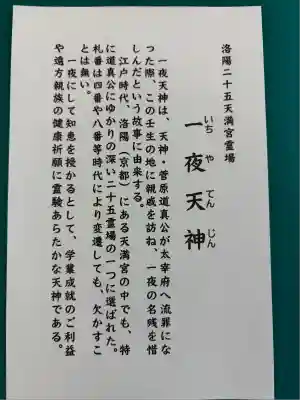 洛陽二十五天満宮霊場
一夜天神
いちやてんじん
一夜天神は、天神・菅原道真公が太宰府へ流罪にな
った際、この壬生の地に親戚を訪ね、一夜の名残を惜
しんだという故事に由来する。
江戸時代、洛陽（京都）にある天満宮の中でも、特
に道真公にゆかりの深い二十五霊場の一つに選ばれた。
札番は四番や八番等時代により変遷しても、欠かすこ
とは無い。
一夜にして知恵を授かるとして、学業成就のご利益
や遠方親族の健康祈願に霊験あらたかな天神である。